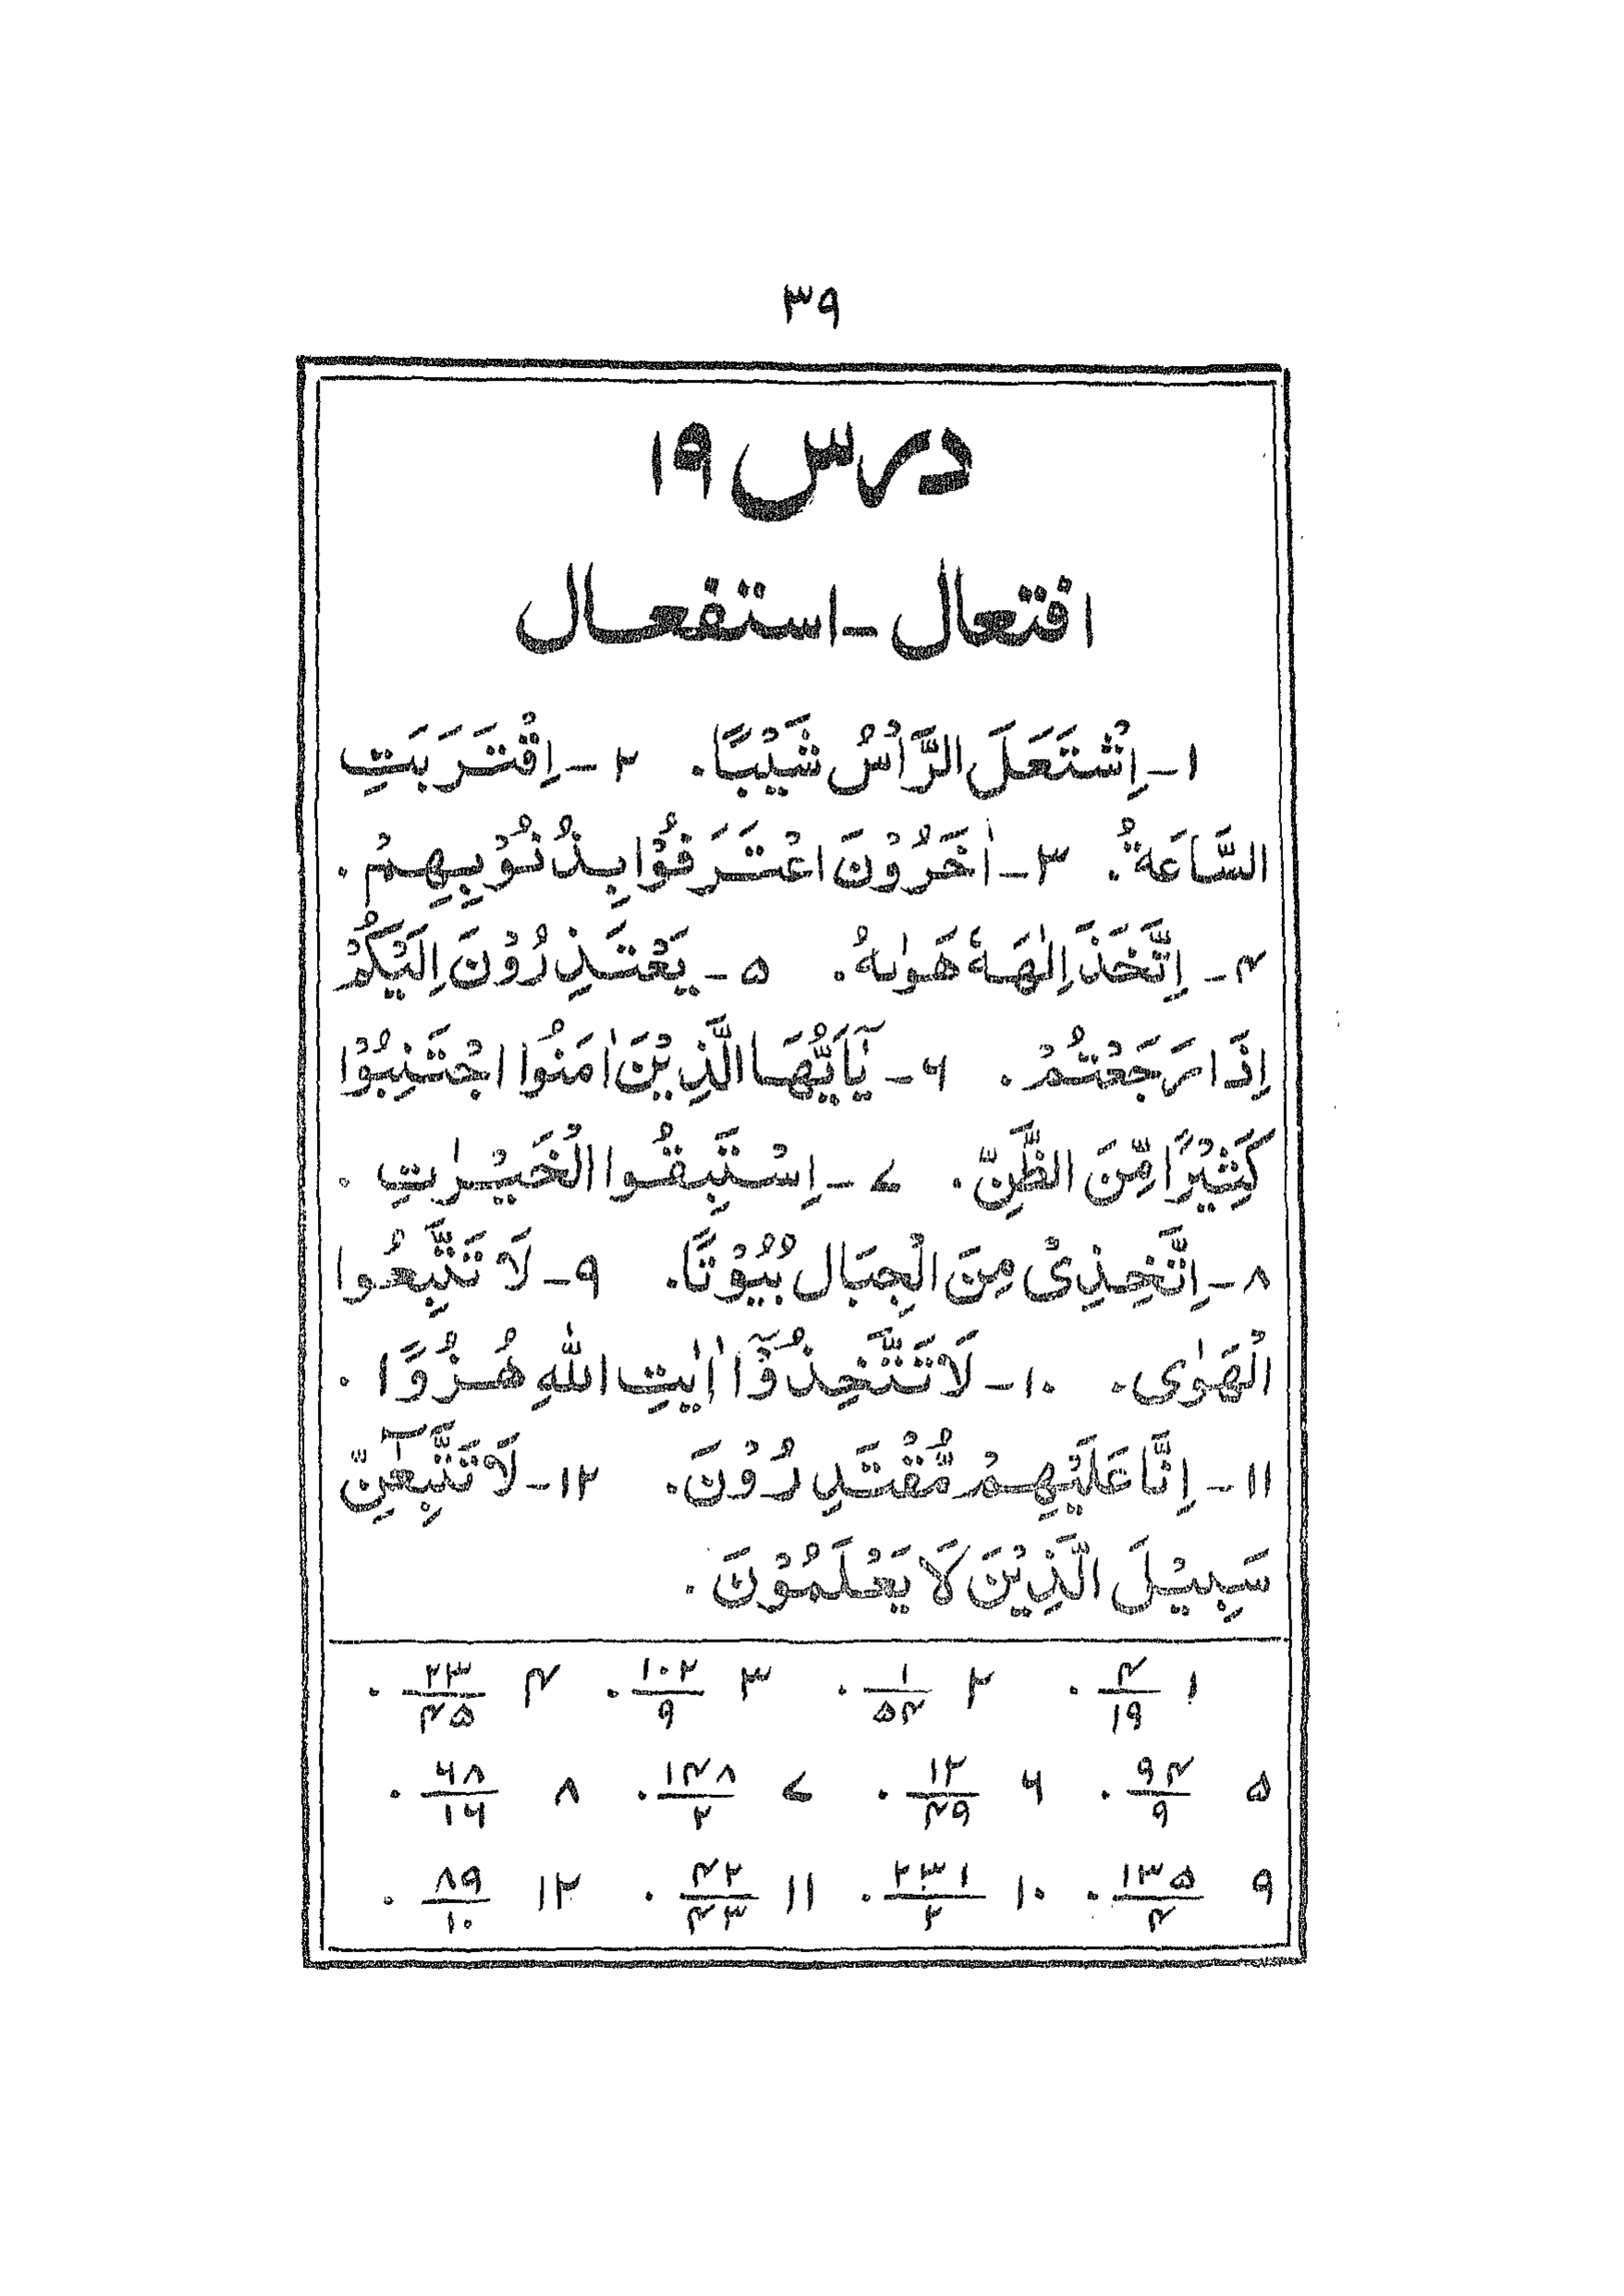 ۳۹
درس ۱۹
افتعال ـ استفعال
۱ـ اِشْتَعَلَ الرَّاْسُ شَيْبًا۔ ۲ـ اِقْتَرَبَتِ
السَّاعَةُ۔ ۳ـ اٰخَرُوْنَ اعْتَرَفُوْا بِذُنُوْبِهِمْ۔
۴ـ اِتَّخَذَ اِلٰهَهٗ هَوٰىهُ۔ ۵ـ يَعْتَذِرُوْنَ اِلَيْكُمْ
اِذَا رَجَعْتُمْ۔ ۶ـ يٰٓاَيُّهَا الَّذِيْنَ اٰمَنُوا اجْتَنِبُوْا
كَثِيْرًا مِّنَ الظَّنِّ۔ ۷ـ اِسْتَبِقُوا الْخَيْرٰتِ۔
۸ـ اِتَّخِذِىْ مِنَ الْجِبَال بُيُوْتًا۔ ۹ـ لَا تَتَّبِعُوا
الْهَوٰى۔ ۱۰ـ لَا تَتَّخِذُوْٓا اٰيٰتِ اللّٰهِ هُزُوًا۔
۱۱ـ اِنَّا عَلَيْهِمْ مُّقْتَدِرُوْنَ۔ ۱۲ـ لَا تَتَّبِعٰٓنِّ
سَبِيْلَ الَّذِيْنَ لَا يَعْلَمُوْنَ۔
۱ ۴/۱۹۔ ۲ ۱/۵۴۔ ۳ ۱۰۲/۹۔ ۴ ۲۳/۴۵۔
۵ ۹۴/۹۔ ۶ ۱۲/۴۹۔ ۷ ۱۴۸/۲۔ ۸ ۶۸/۱۶۔
۹ ۱۳۵/۴۔ ۱۰ ۲۳۱/۲۔ ۱۱ ۴۲/۴۳۔ ۱۲ ۸۹/۱۰۔